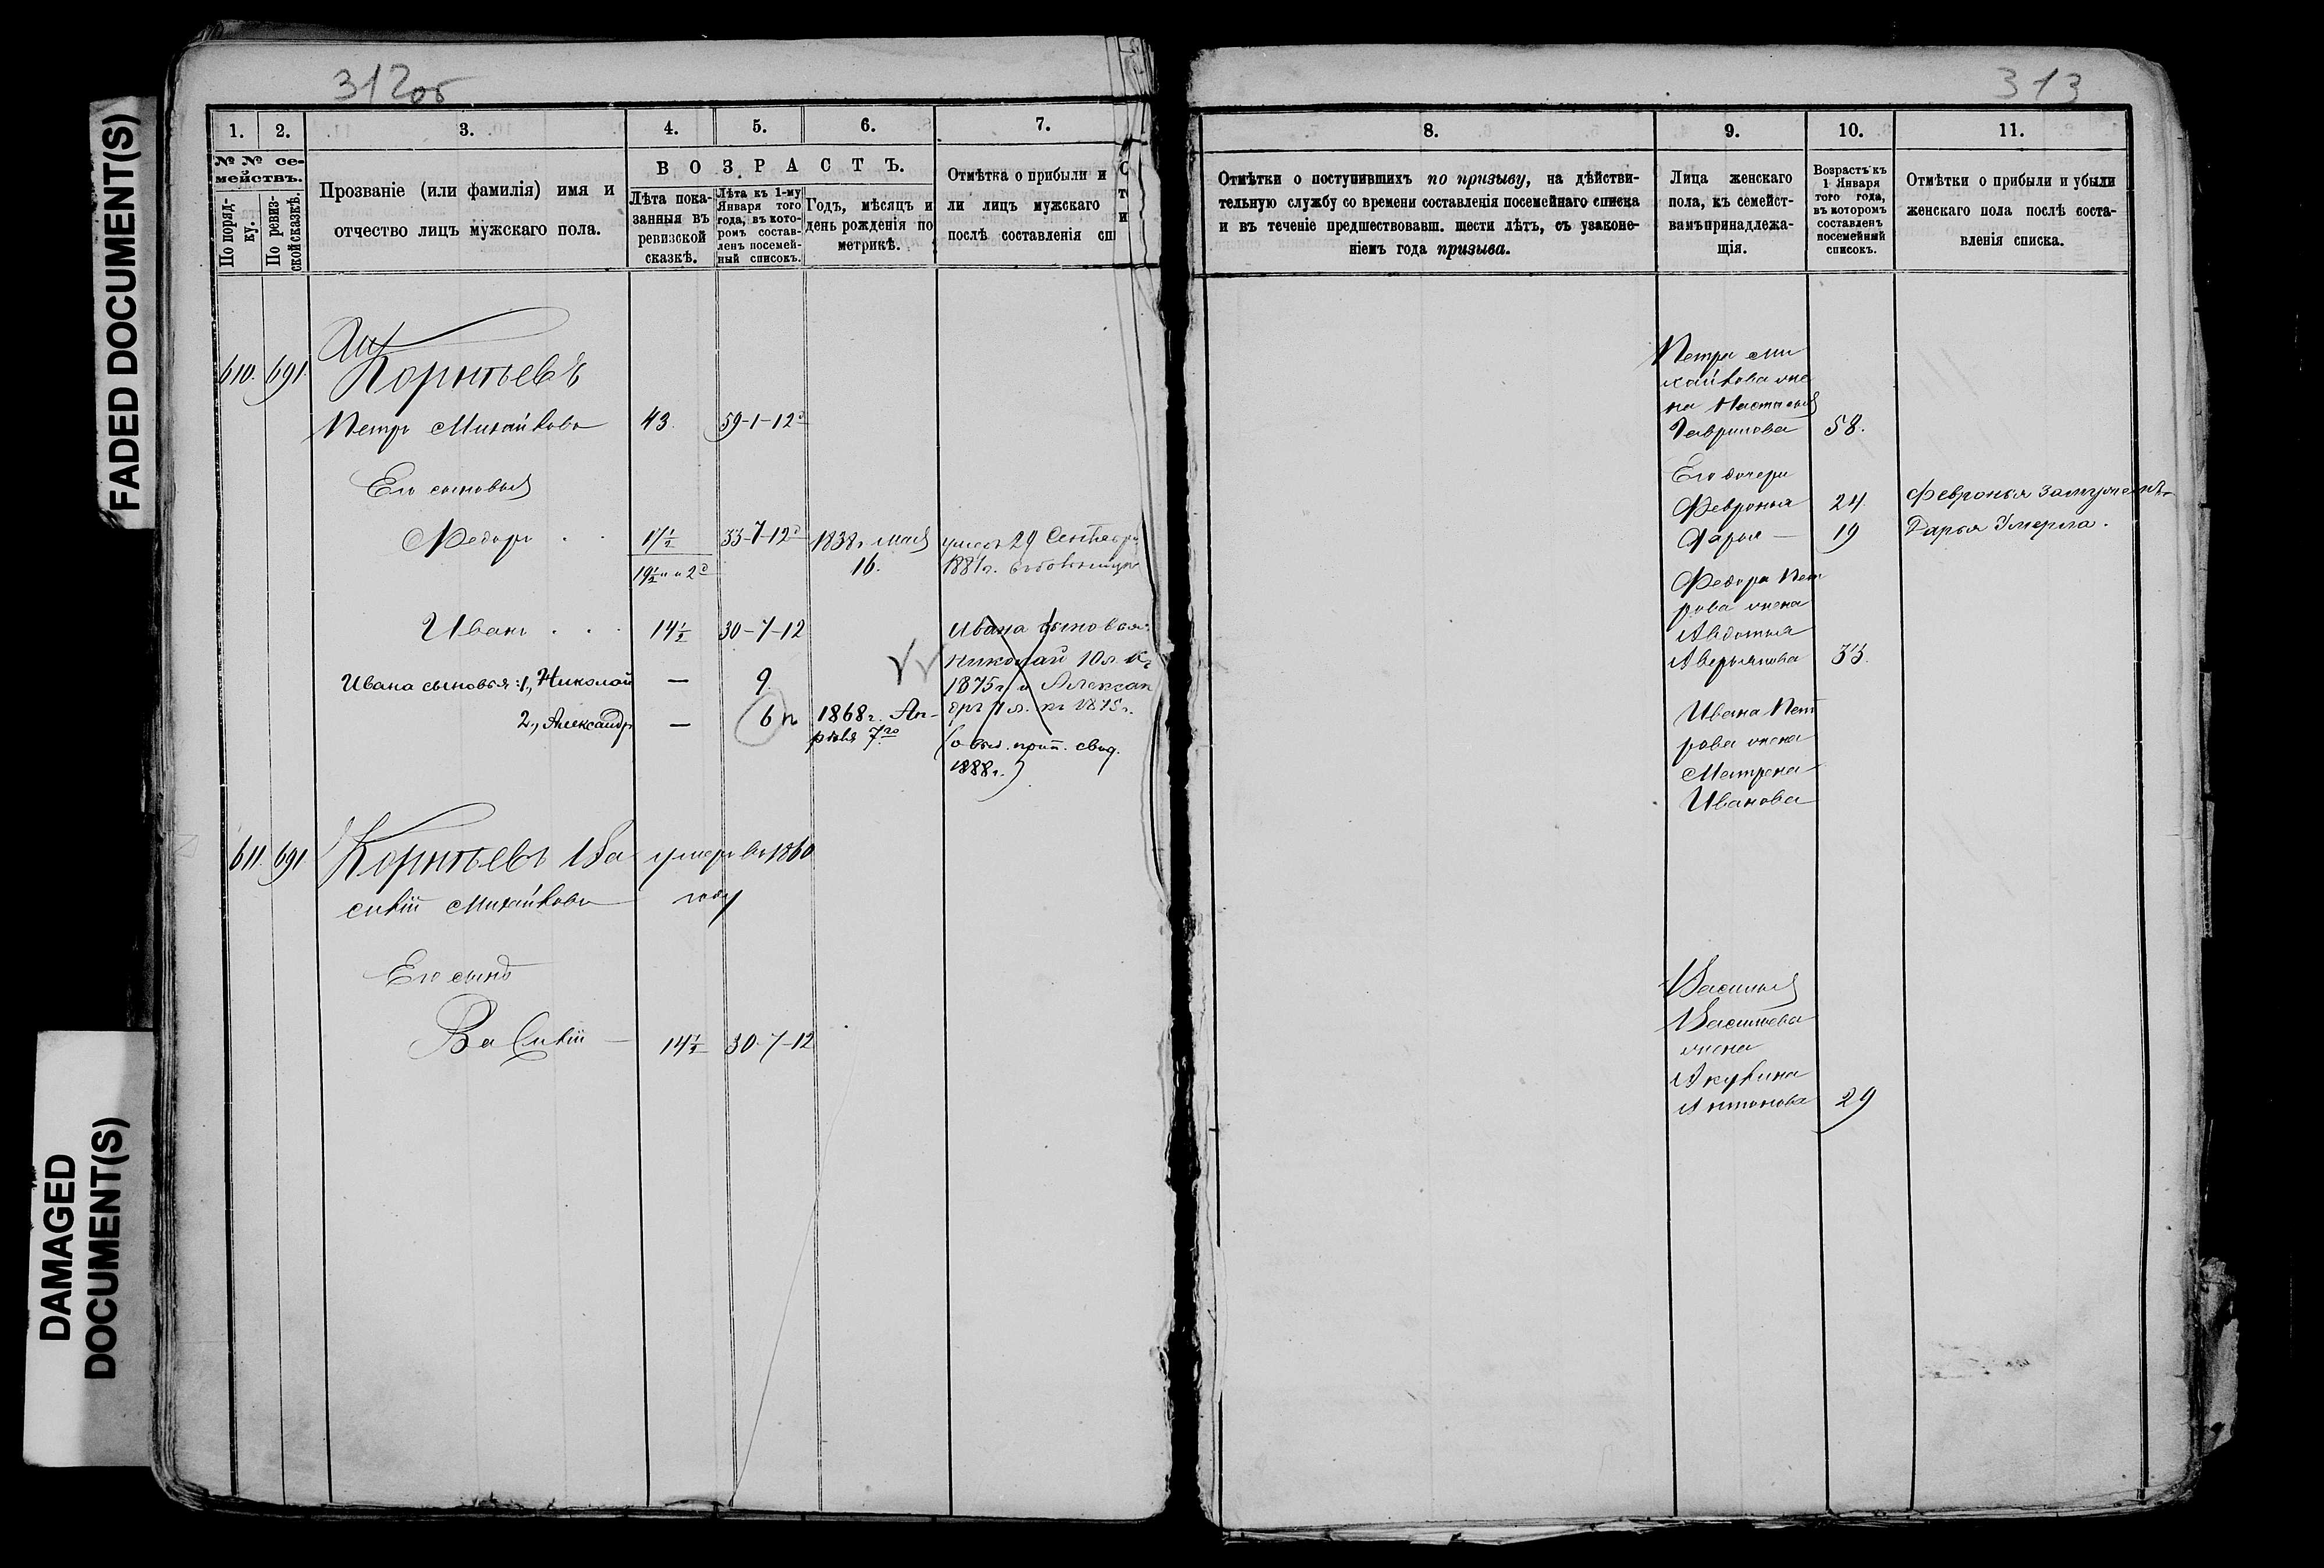 FADED DOCUMENT(S)
DAMAGED
DOCUMENT(S)
312об
1.
2.
3.
4.
5.
6.
7.
№ № се-
мействъ.
По поряд-
ку.
По ревиз-
ской сказкѣ.
Прозваніе (или фамилія) имя и
отчество лицъ мужскаго пола.
ВОЗРАСТЪ.
Лѣта пока-
занныя въ
ревизской
сказкѣ.
Лѣта къ 1-му
Января того
года, въ кото-
ромъ состав-
ленъ посемей-
ный список.
Годъ, мѣсяцъ и
день рожденія по
метрикѣ.
Отмѣтка о прибыли и
ли лицъ мужскаго
послѣ составленія сп
610. 691.
Петръ Михайловъ 43. 59-1-12
Его сыновья
Федоръ 17½ 33-7-12 1838 г. Мая умеръ 29 Сентября
19½ 16. 1881 г.
Иванъ 14½ 30-7-12 Ивана сыновья:
Николай 10 л. къ
Ивана сыновья: 1., Николай — 9. 1875 г. и Алексан
2., Александръ — 6 1868 г. Ап- дръ 7 л. къ 1875 г.
рѣля 7го
1888 г.)
611. 691 Ва умеръ въ 1860
силій Михайловъ году
Его сынъ
Василій 14½ 30-7-12
313
8.
9.
10.
11.
Отмѣтки о поступившихъ по призыву, на дѣйстви-
тельную службу со времени составленія посемейнаго списка
и въ теченіе предшествовавш. шести лѣтъ, съ узаконе-
ніемъ года призыва.
Лица женскаго
пола, къ семейст-
вамъ принадлежа-
щія.
Возрастъ къ
1 Января
того года,
въ которомъ
составленъ
посемейный
списокъ.
Отмѣтки о прибыли и убыли
женскаго пола послѣ соста-
вленія списка.
Петра Ми
хайлова же
на Настасья
Гаврилова 58.
Его дочери
Февронья 24. Февронья замужемъ
Дарья — 19 Дарья Умерла.
Федора Пет
рова жена
Авдотья
Аверьянова 33.
Ивана Пет
рова жена
Матрена
Иванова
Василья
Васильева
жена
Акулина
Антонова 29